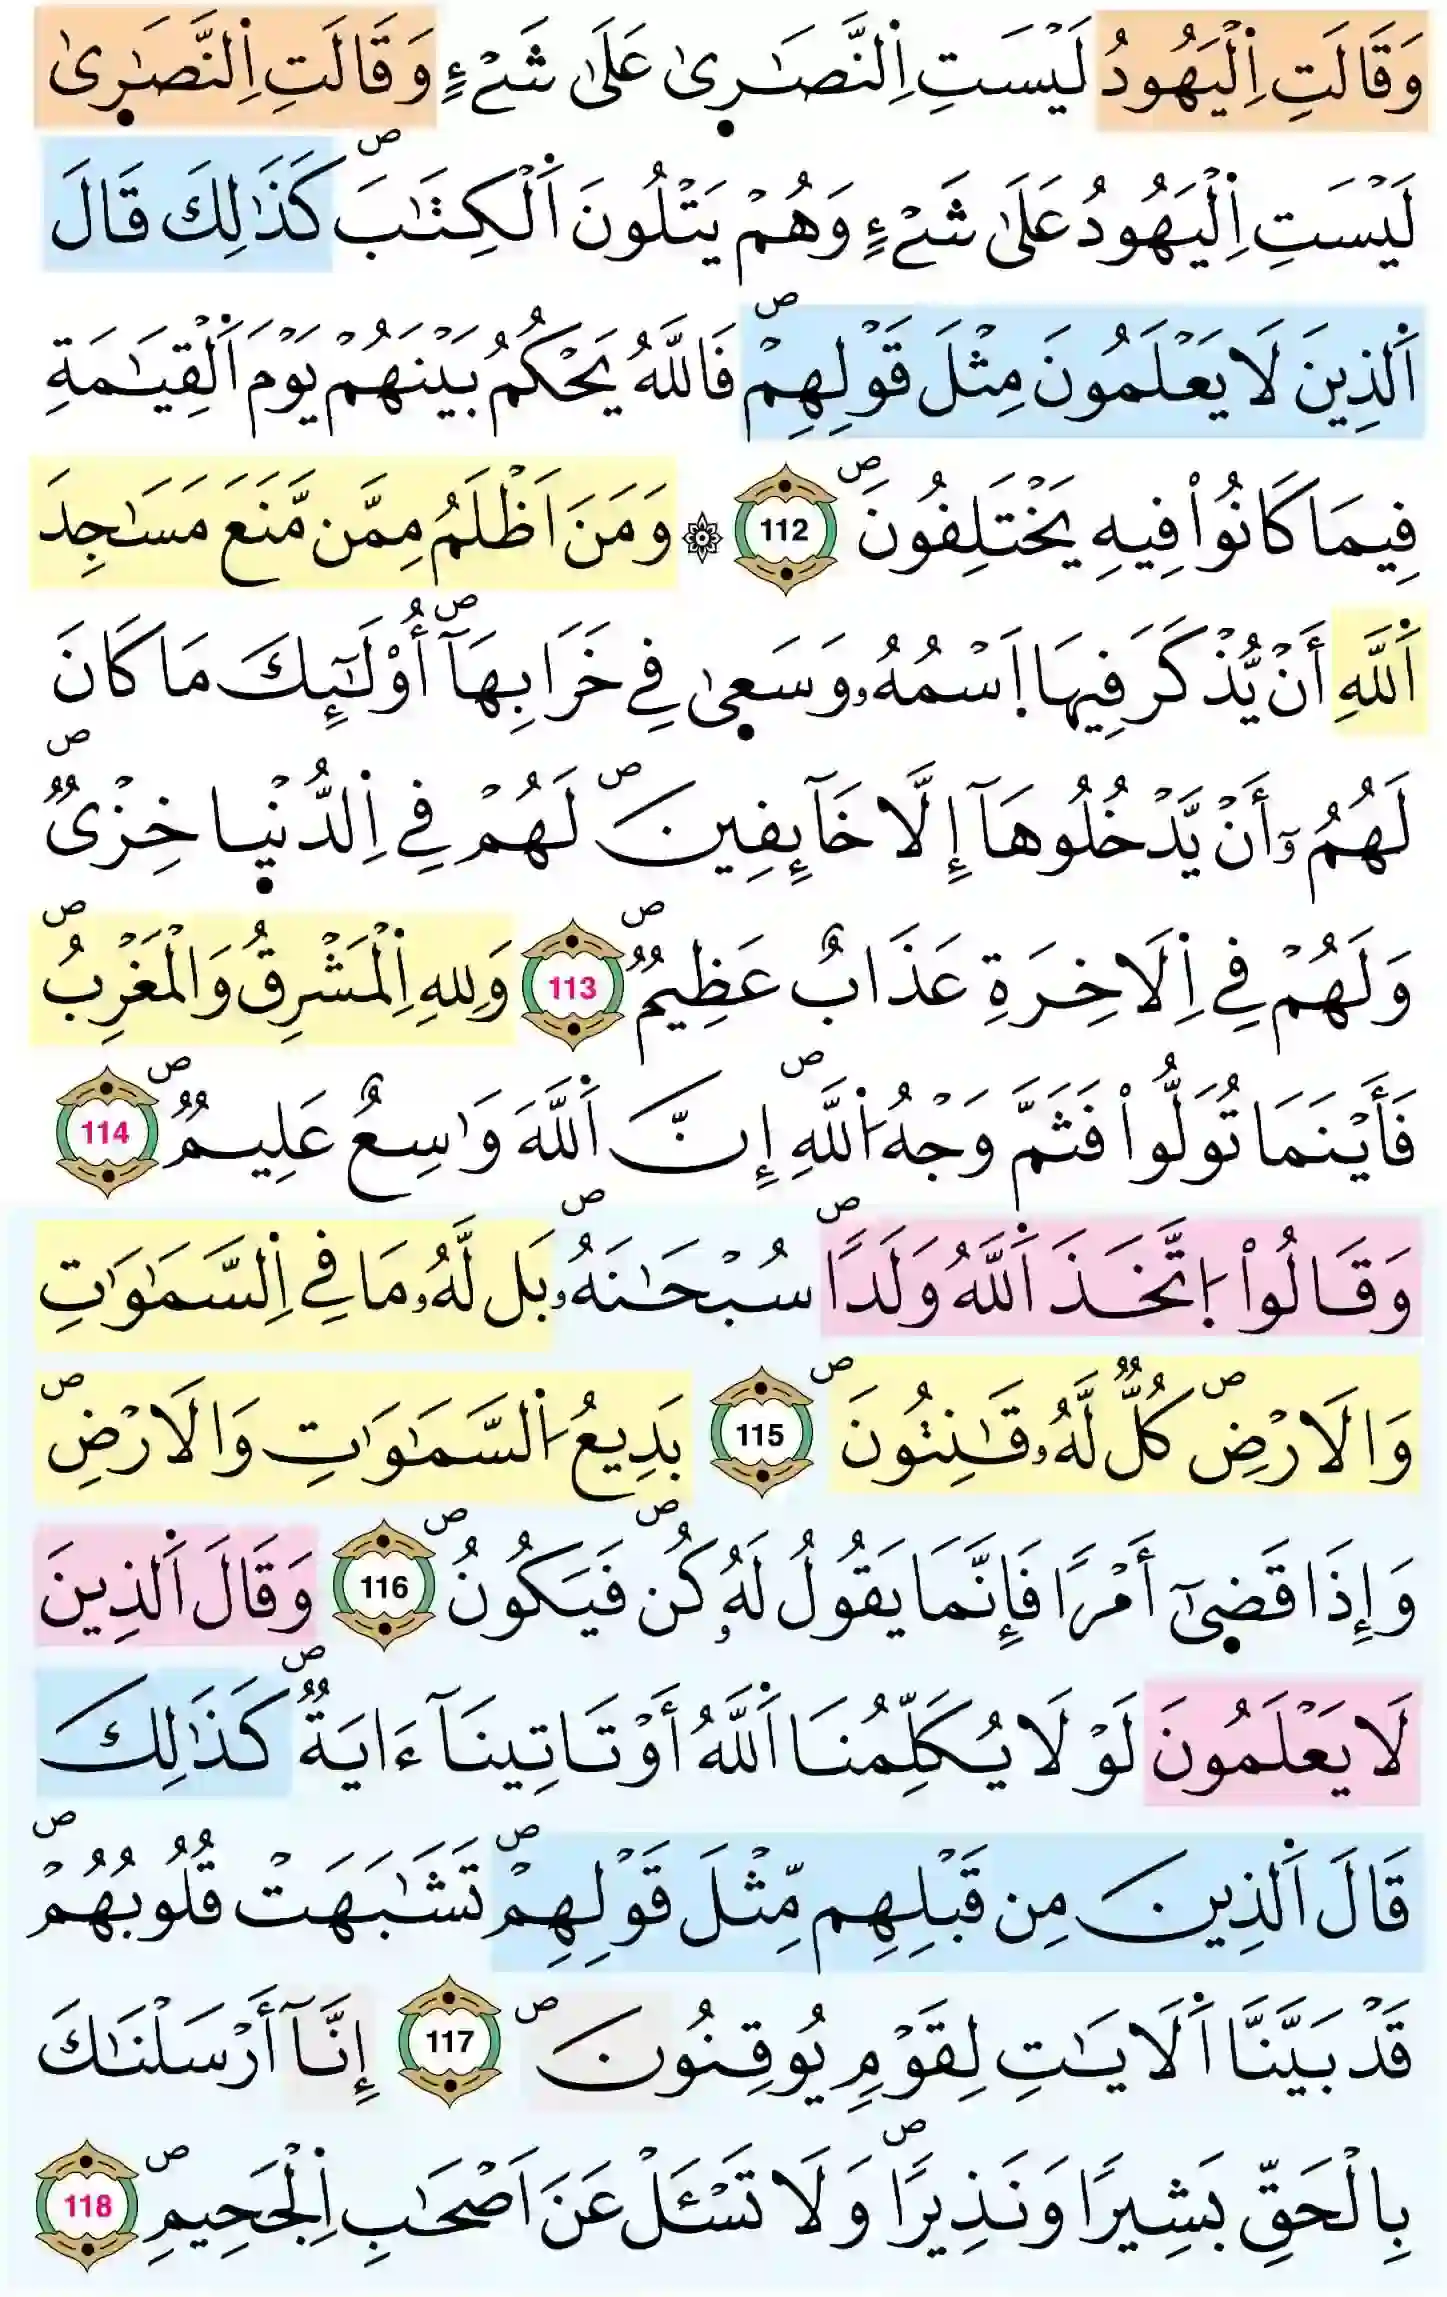 وَقَالَتِ اِ۬لْيَهُودُ لَيْسَتِ اِ۬لنَّصَٰر۪يٰ عَلَىٰ شَےْءٖ وَقَالَتِ اِ۬لنَّصَٰر۪يٰ
لَيْسَتِ اِ۬لْيَهُودُ عَلَىٰ شَےْءٖ وَهُمْ يَتْلُونَ اَ۬لْكِتَٰبَۖ كَذَٰلِكَ قَالَ
اَ۬لذِينَ لَا يَعْلَمُونَ مِثْلَ قَوْلِهِمْۖ فَاللَّهُ يَحْكُمُ بَيْنَهُمْ يَوْمَ اَ۬لْقِيَٰمَةِ
فِيمَا كَانُواْ فِيهِ يَخْتَلِفُونَۖ 112 ۞ وَمَنَ اَظْلَمُ مِمَّن مَّنَعَ مَسَٰجِدَ
اَ۬للَّهِ أَنْ يُّذْكَرَ فِيهَا اَ۪سْمُهُۥ وَسَع۪يٰ فِے خَرَابِهَآۖ أُوْلَٰٓئِكَ مَا كَانَ
لَهُمُۥٓ أَنْ يَّدْخُلُوهَآ إِلَّا خَآئِفِينَۖ لَهُمْ فِے اِ۬لدُّنْي۪ا خِزْيٞۖ
وَلَهُمْ فِے اِ۬لَاخِرَةِ عَذَابٌ عَظِيمٞۖ 113 وَلِلهِ اِ۬لْمَشْرِقُ وَالْمَغْرِبُۖ
فَأَيْنَمَا تُوَلُّواْ فَثَمَّ وَجْهُ اُ۬للَّهِۖ إِنَّ اَ۬للَّهَ وَٰسِعٌ عَلِيمٞۖ 114
وَقَالُواْ اُ۪تَّخَذَ اَ۬للَّهُ وَلَداٗۖ سُبْحَٰنَهُۥۖ بَل لَّهُۥ مَا فِے اِ۬لسَّمَٰوَٰتِ
وَالَارْضِۖ كُلّٞ لَّهُۥ قَٰنِتُونَۖ 115 بَدِيعُ اُ۬لسَّمَٰوَٰتِ وَالَارْضِۖ
وَإِذَا قَض۪يٰٓ أَمْراٗ فَإِنَّمَا يَقُولُ لَهُۥ كُنۖ فَيَكُونُۖ 116 وَقَالَ اَ۬لذِينَ
لَا يَعْلَمُونَ لَوْ لَا يُكَلِّمُنَا اَ۬للَّهُ أَوْ تَاتِينَآ ءَايَةٞۖ كَذَٰلِكَ
قَالَ اَ۬لذِينَ مِن قَبْلِهِم مِّثْلَ قَوْلِهِمْۖ تَشَٰبَهَتْ قُلُوبُهُمْۖ
قَدْ بَيَّنَّا اَ۬لَايَٰتِ لِقَوْمٖ يُوقِنُونَۖ 117 إِنَّآ أَرْسَلْنَٰكَ
بِالْحَقِّ بَشِيراٗ وَنَذِيراٗۖ وَلَا تَسْـَٔلْ عَنَ اَصْحَٰبِ اِ۬لْجَحِيمِۖ 118